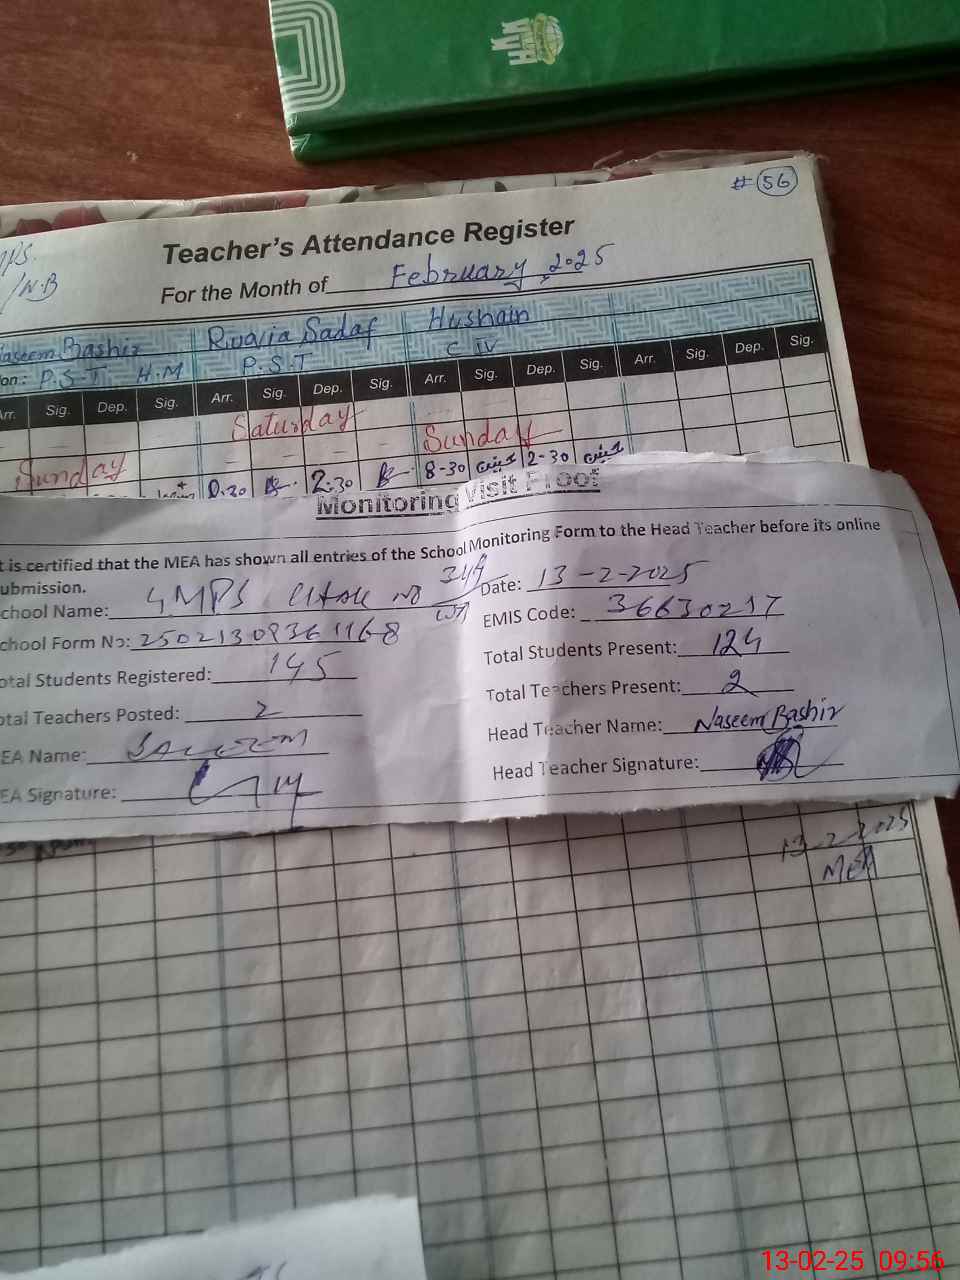 HKK
# 56
Teacher's Attendance Register
For the Month of February 2025
/N.B
Naseem Bashir Rwaia Sadaf Hushain
on: P.S.T H.M P.S.T C IV
Arr. Sig. Dep. Sig. Arr. Sig. Dep. Sig. Arr. Sig. Dep. Sig. Arr. Sig. Dep. Sig.
Saturday
Sunday Sunday
8.30 2.30 8-30 2-30
Monitoring Visit Proof
t is certified that the MEA has shown all entries of the School Monitoring Form to the Head Teacher before its online
ubmission.
chool Name: GMPS Chak No 314 Date: 13-2-2025
WB EMIS Code: 36630217
chool Form No: 25021309361168 Total Students Present: 124
otal Students Registered: 145 Total Teachers Present: 2
otal Teachers Posted: 2 Head Teacher Name: Naseem Bashir
EA Name: Saleem Head Teacher Signature:
EA Signature:
13-2-2025
MEA
13-02-25 09:56